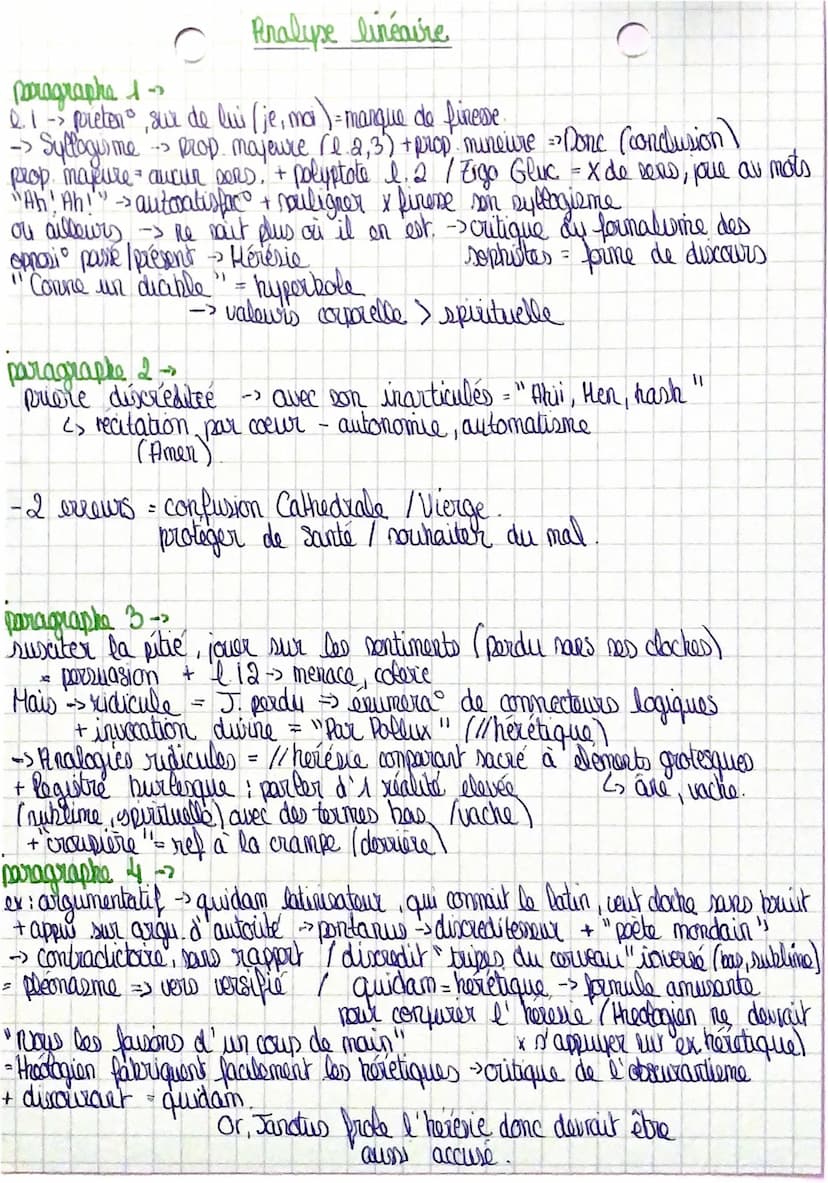 Analyse linéaire
paragraphe 1 →
l.1 → préten°, sur de lui (je, moi) = manque de finesse.
→ Syllogisme → prop. majeure (l.2,3) + prop. mineure => Donc (conclusion)
prop. majeure = aucun sens. + polyptote l.2 / Ergo Gluc = x de sens, joue au mots
"Ah! Ah!" → autosatisfac° + souligner x finesse son syllogisme
ou ailleurs → ne sait plus où il en est. → critique du formalisme des
opposi° passé/présent → Hérésie sophistes = forme de discours
"Comme un diable" = hyperbole
→ valeurs corporelle > spirituelle
paragraphe 2 →
prière discréditée → avec son inarticulés = "Ahii, Hen, hash"
↳ récitation par coeur - autonomie, automatisme
(Amen)
-2 erreurs = confusion Cathédrale / Vierge.
protéger de santé / souhaiter du mal.
paragraphe 3 →
susciter la pitié, jouer sur les sentiments (perdu sans ses cloches)
= persuasion + l.12 → menace, colère
Mais → ridicule = J. perdu => énuméra° de connecteurs logiques
+ invocation divine = "Par Pollux" (//hérétique)
→ Analogies ridicules = // hérésie comparant sacré à elements grotesques
+ Registre burlesque : parler d'1 réalité elevée ↳ âne, vache.
(sublime, spirituelle) avec des termes bas (vache)
+ "croupière" = ref à la crampe (derrière)
paragraphe 4 →
ex : argumentatif → quidam latinisateur, qui connait le latin, veut cloche sans bruit
+ appui sur argu. d'autorité → pontanus → discrediteseur + "poète mondain"
→ contradictoire, sans rapport / discredit "tripes du cerveau" inversé (bas, sublime)
= pléonasme => vers versifié / quidam = hérétique → formule amusante
pour conjurer l'hérésie (Theologien ne devrait
"Nous les faisons d'un coup de main" x s'appuyer sur ex hérétique)
= Théologien fabriquent facilement les hérétiques → critique de l'obscurantisme
+ discourant = quidam.
Or, Janotus frole l'hérésie donc devrait être
aussi accusé.